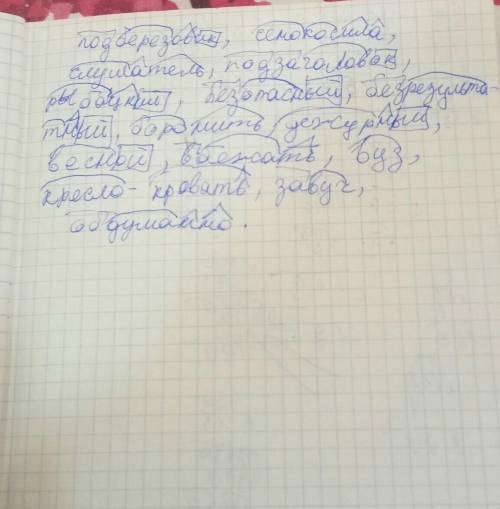 подберезовик, сенокосила,
слушатель, подзаголовок,
рыбацкий, безопасный, безрезульта-
тный, барежить, дежурный,
весной, вбежать, вуз,
кресло-кровать, завуч,
обдуманно.